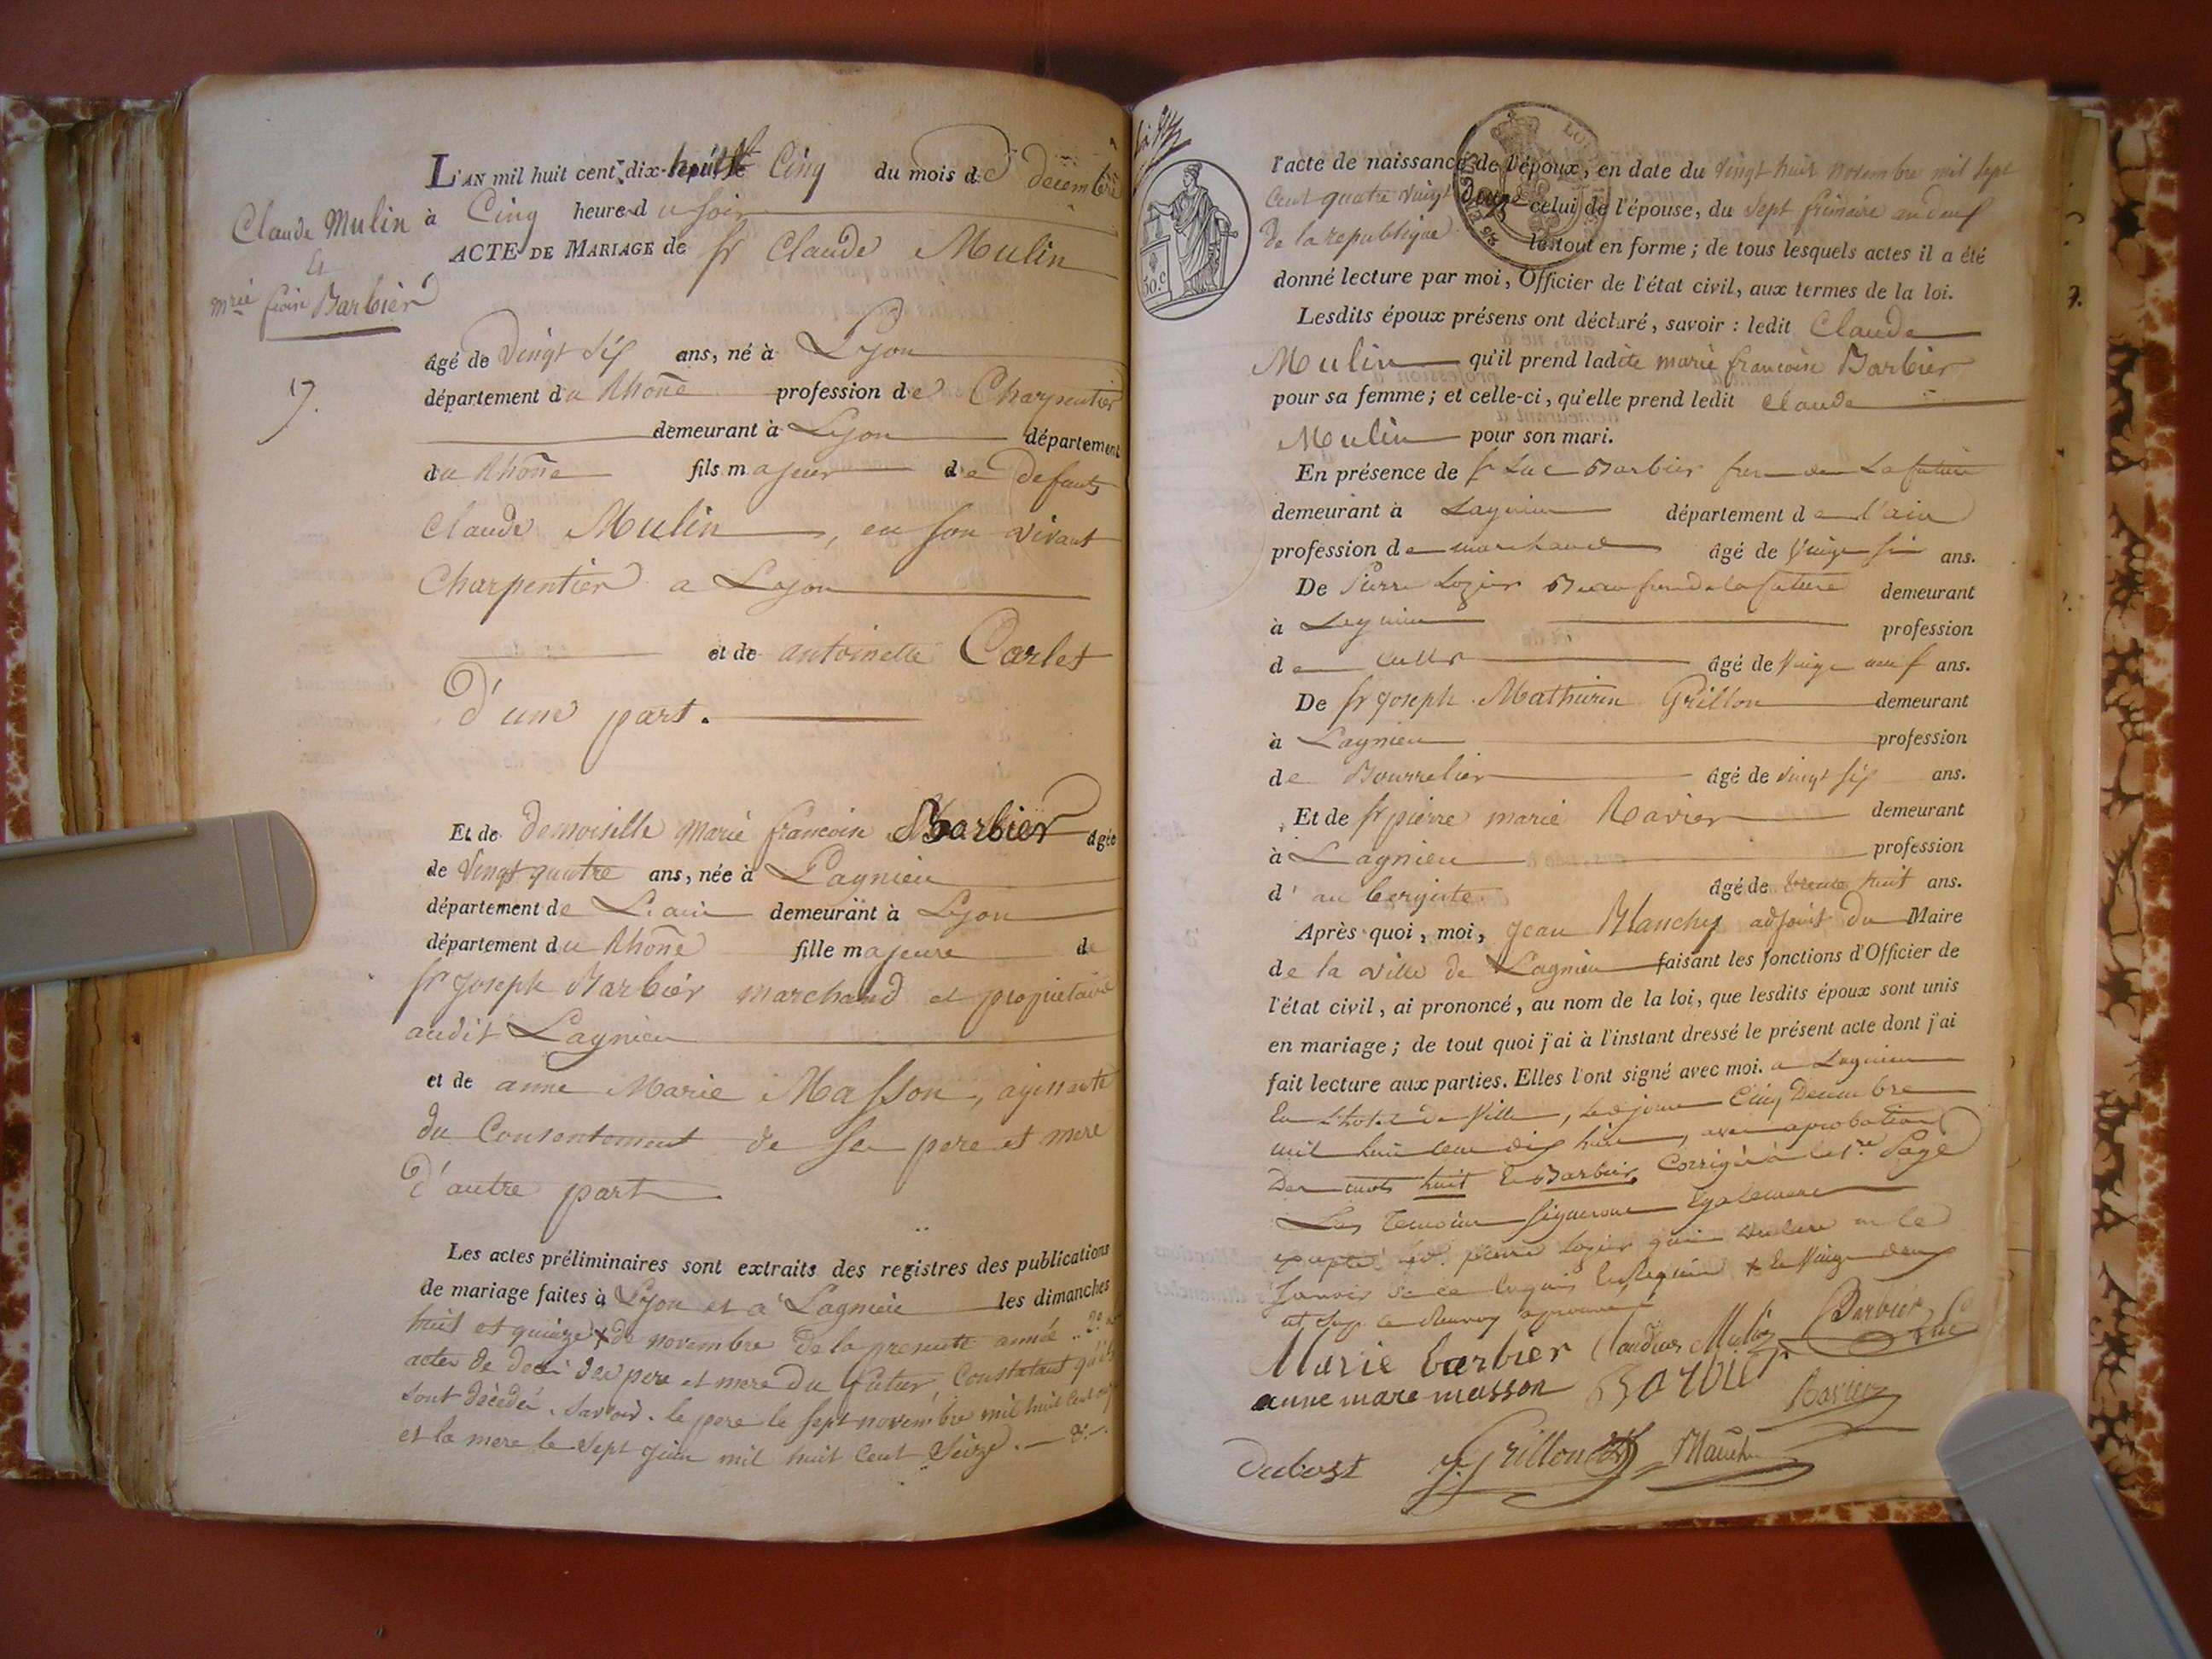 Claude Mulin
Et
mrie froise Barbier
17.
L'AN mil huit cent dix-huit le Cinq du mois de decembre
à Cinq heure du soir
ACTE DE MARIAGE de sr Claude Mulin
âgé de Vingt Six ans, né à Lyon
département du Rhône profession de Charpentier
demeurant à Lyon département
du Rhône fils majeur de defunts
Claude Mulin, en son vivant
Charpentier a Lyon
et de antoinette Carlet
D'une part.
Et de demoiselle marie francoise Barbier âgée
de Vingt quatre ans, née à Lagnieu
département de L'ain demeurant à Lyon
département du Rhône fille majeure de
sr Joseph Barbier marchand et propriétaire
audit Lagnieu
et de anne Marie Masson, agissante
du Consentement de ses pere et mere
D'autre part
Les actes préliminaires sont extraits des registres des publications
de mariage faites à Lyon et a Lagnieu les dimanches
huit et quinze + de novembre de la presente année .. 2°
actes de décé des pere et mere du futur, Constatant qu'ils
sont décédés. Savoir. le pere le sept novembre mil huit Cent
et la mere le Sept Juin mil huit Cent Seize. — 3°.
30.C
l'acte de naissance de l'époux, en date du Vingt huit novembre mil sept
Cent quatre vingt douze celui de l'épouse, du Sept frimaire an deux
de la republique le tout en forme ; de tous lesquels actes il a été
donné lecture par moi, Officier de l'état civil, aux termes de la loi.
Lesdits époux présens ont déclaré, savoir : ledit Claude
Mulin qu'il prend ladite marie francoise Barbier
pour sa femme ; et celle-ci, qu'elle prend ledit Claude
Mulin pour son mari.
En présence de sr Luc Barbier frere de La future
demeurant à Lagnieu département de l'ain
profession de marchand âgé de Vingt six ans.
De Pierre Lozier Beau frere de la future demeurant
à Lagnieu profession
de âgé de Vingt neuf ans.
De sr Joseph Mathurin Grillon demeurant
à Lagnieu profession
de Bourrelier âgé de Vingt Six ans.
Et de sr pierre marie Ravier demeurant
à Lagnieu profession
d'aubergiste âgé de trente huit ans.
Après quoi, moi, Jean Blanchy adjoint du Maire
de la ville de Lagnieu faisant les fonctions d'Officier de
l'état civil, ai prononcé, au nom de la loi, que lesdits époux sont unis
en mariage ; de tout quoi j'ai à l'instant dressé le présent acte dont j'ai
fait lecture aux parties. Elles l'ont signé avec moi. a Lagnieu
En L'hotel de Ville, Le jour Cinq Decembre
mil huit cent dix huit, avec aprobation
Des mots huit Et Barbier Corrigés à la 1re Page
Les Temoins signeront Egalement
excepté led. pierre Lozier qui a declaré ne le
savoir de ce Enquis Et Requis + Le Vingt deux
Marie barbier Claudius Mulin Barbier Luc
anne mare masson Barbier Ravier
Dubost J. Grillon Blanchy